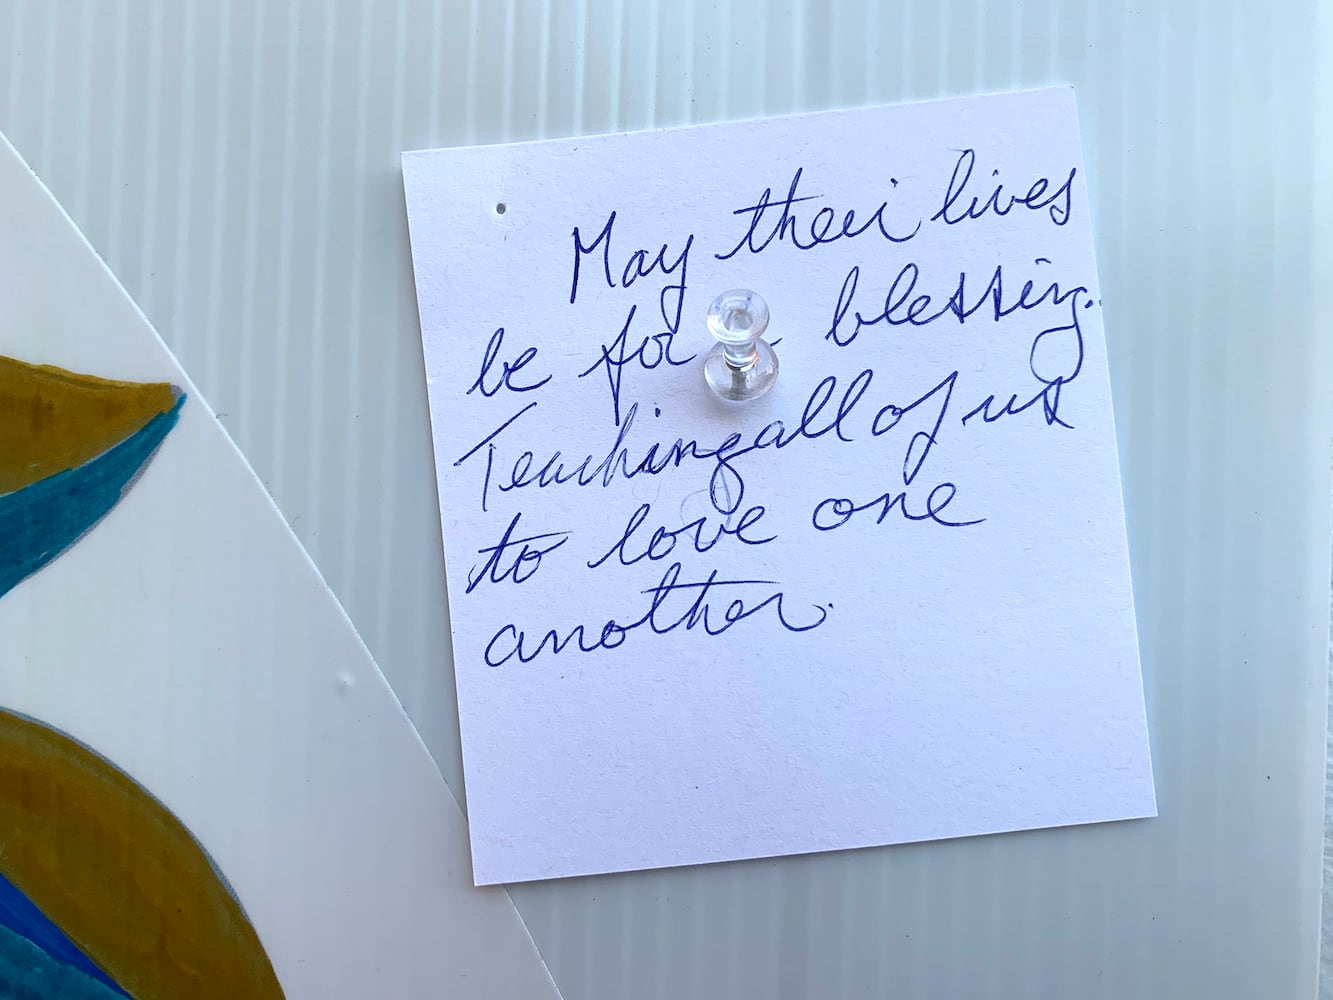 May their lives
be for blessing.
Teaching all of us
to love one
another.